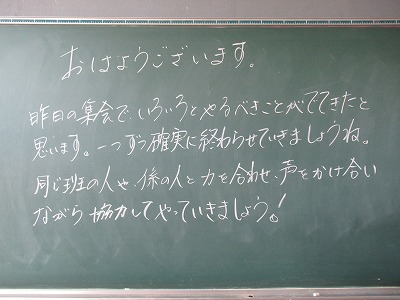 おはようございます。
昨日の集会で、いろいろとやるべきことがでてきたと
思います。一つずつ確実に終わらせていきましょうね。
同じ班の人や、係の人と力を合わせ、声をかけ合い
ながら協力してやっていきましょう!